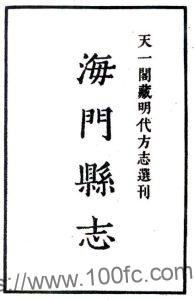 天一閣藏明代方志選刊
海門縣志
://www.100fc.com/